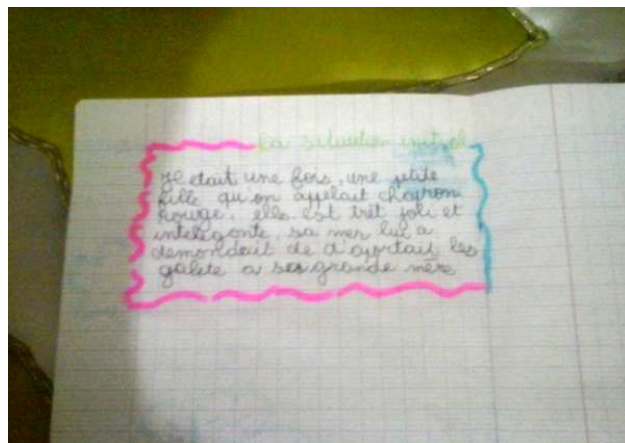 La situation initial
Il etait une fois, une petite
fille qu'on appelait chapron
Rouge. elle est trèt joli et
intelegonte, sa mer lui a
demondait de d'aportait les
galete a ses grande mère